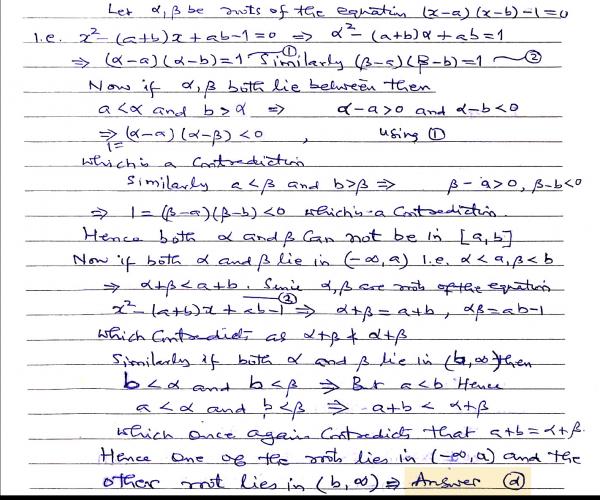 Let α, β be roots of the equation (x-a)(x-b)-1=0
I.e. x²-(a+b)x+ab-1=0 ⇒ α²-(a+b)α+ab=1
⇒ (α-a)(α-b)=1 ① Similarly (β-a)(β-b)=1 — ②
Now if α, β both lie between then
a<α and b>α ⇒ α-a>0 and α-b<0
⇒ 1= (α-a)(α-β)<0 , using ①
which is a Contradiction
Similarly a<β and b>β ⇒ β-a>0, β-b<0
⇒ 1=(β-a)(β-b)<0 which is a Contradiction.
Hence both α and β Can not be in [a,b]
Now if both α and β lie in (-∞,a) I.e. α<a, β<b
⇒ α+β<a+b. Since α, β are roots of the equation
x²-(a+b)x+ab-1 ② ⇒ α+β=a+b, αβ=ab-1
which Contradicts as α+β ≮ α+β
Similarly if both α and β lie in (b,∞) then
b<α and b<β ⇒ But a<b Hence
a<α and b<β ⇒ a+b<α+β
which once again Contradicts that a+b=α+β.
Hence One of the roots lies in (-∞,a) and the
other root lies in (b,∞) ⇒ Answer (d)